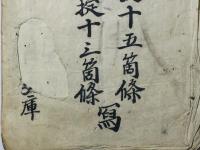 十五箇條
掟十三箇條
寫
文庫